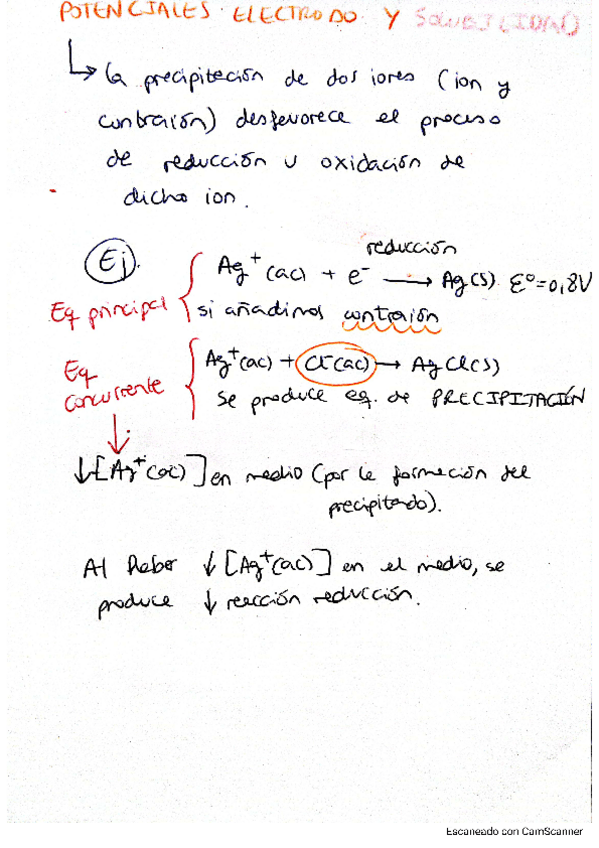 POTENCIALES ELECTRODO Y SOLUBILIDAD
↳ La precipitación de dos iones (ion y
contraión) desfavorece el proceso
de reducción u oxidación de
dicho ion.
Ej.
reducción
Eq principal { Ag⁺(ac) + e⁻ → Ag(s) ε⁰=0,8V
si añadimos contraión
Eq concurrente { Ag⁺(ac) + Cl⁻(ac) → AgCl(s)
se produce eq. de PRECIPITACIÓN
↓[Ag⁺(ac)] en medio (por la formación del
precipitado).
Al haber ↓[Ag⁺(ac)] en el medio, se
produce ↓ reacción reducción.
Escaneado con CamScanner